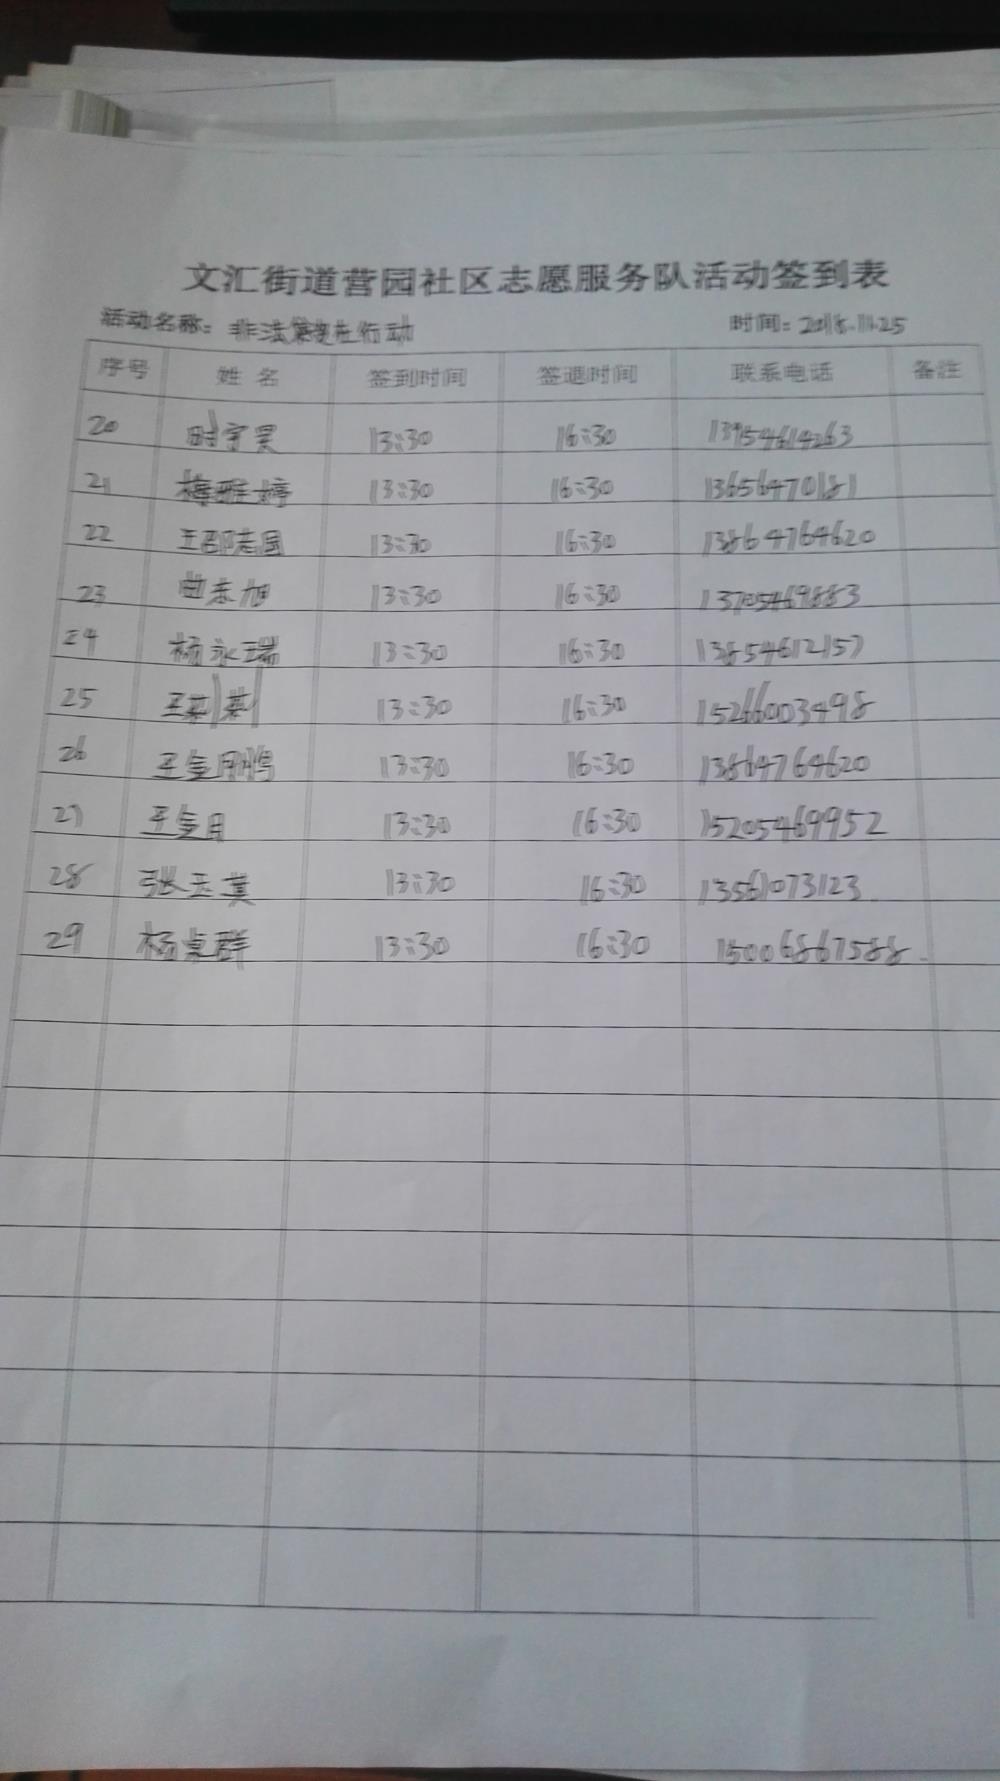 文汇街道营园社区志愿服务队活动签到表
活动名称：非法集资在行动 时间：2018.11.25
序号 姓 名 签到时间 签退时间 联系电话 备注
20 时宇昊 13:30 16:30 13954614263
21 梅雅婷 13:30 16:30 13656470181
22 王邵志国 13:30 16:30 13864764620
23 曲东旭 13:30 16:30 13705469883
24 杨永瑞 13:30 16:30 13854612157
25 13:30 16:30 15266003498
26 王金月鹏 13:30 16:30 13864764620
27 王金月 13:30 16:30 15205469952
28 张玉莫 13:30 16:30 13561073123
29 杨卓群 13:30 16:30 15006867588